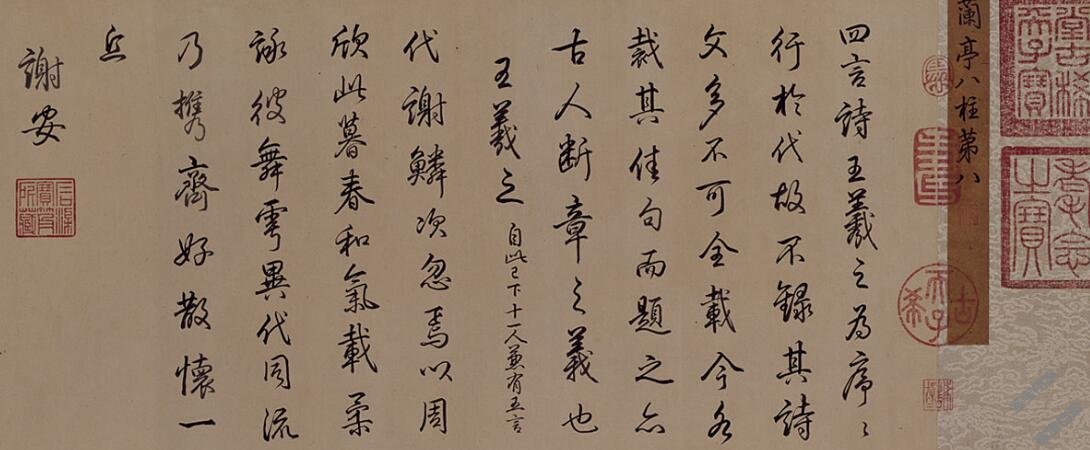 蘭亭八柱第八
四言詩王羲之為序〻
行於代故不錄其詩
文多不可全載今各
裁其佳句而題之亦
古人斷章之義也
王羲之 自此已下十一人兼有五言
代謝鱗次忽焉以周
欣此暮春和氣載柔
詠彼舞雩異代同流
乃攜齊好散懷一
丘
謝安
古稀天子